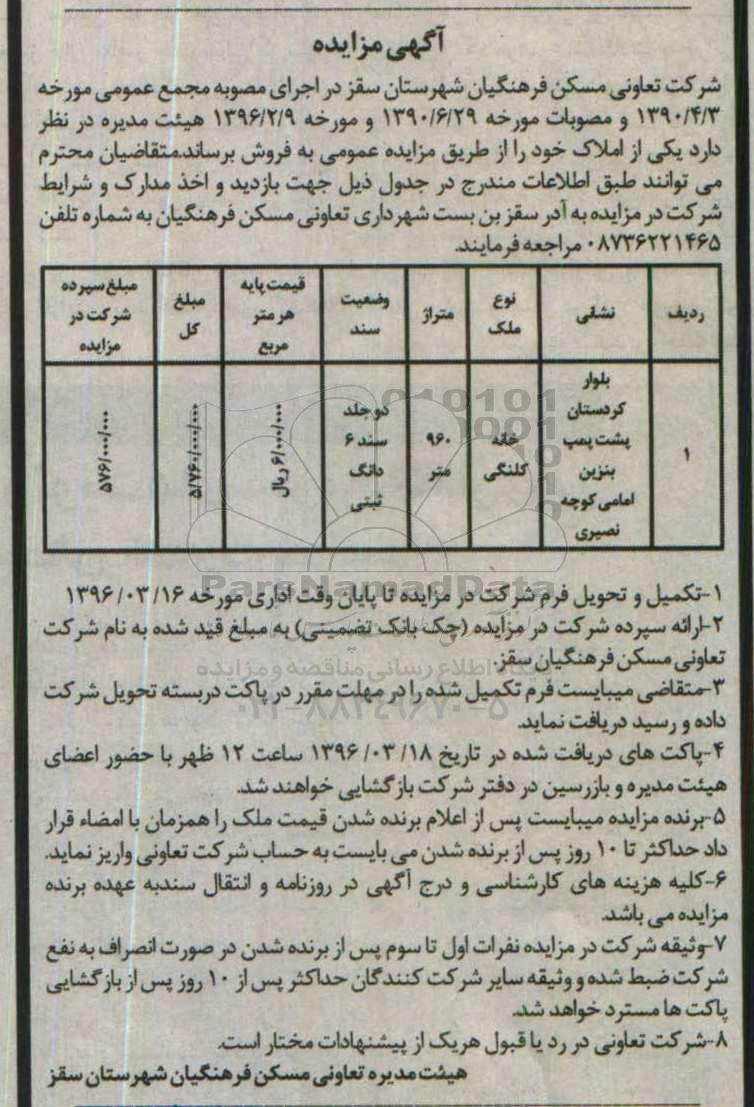 آگهی مزایده
شرکت تعاونی مسکن فرهنگیان شهرستان سقز در اجرای مصوبه مجمع عمومی مورخه
۱۳۹۰/۴/۳ و مصوبات مورخه ۱۳۹۰/۶/۲۹ و مورخه ۱۳۹۶/۲/۹ هیئت مدیره در نظر
دارد یکی از املاک خود را از طریق مزایده عمومی به فروش برساند.متقاضیان محترم
می توانند طبق اطلاعات مندرج در جدول ذیل جهت بازدید و اخذ مدارک و شرایط
شرکت در مزایده به آدر سقز بن بست شهرداری تعاونی مسکن فرهنگیان به شماره تلفن
۰۸۷۳۶۲۲۱۴۶۵ مراجعه فرمایند.
ردیف	نشانی	نوع ملک	متراژ	وضعیت سند	قیمت پایه هر متر مربع	مبلغ کل	مبلغ سپرده شرکت در مزایده
۱	بلوار کردستان پشت پمپ بنزین امامی کوچه نصیری	خانه کلنگی	۹۶۰ متر	دو جلد سند ۶ دانگ ثبتی	۶/۰۰۰/۰۰۰ ریال	۵/۷۶۰/۰۰۰/۰۰۰	۵۷۶/۰۰۰/۰۰۰
۱-تکمیل و تحویل فرم شرکت در مزایده تا پایان وقت اداری مورخه ۱۳۹۶/۰۳/۱۶
۲-ارائه سپرده شرکت در مزایده (چک بانک تضمینی) به مبلغ قید شده به نام شرکت
تعاونی مسکن فرهنگیان سقز.
۳-متقاضی میبایست فرم تکمیل شده را در مهلت مقرر در پاکت دربسته تحویل شرکت
داده و رسید دریافت نماید.
۴-پاکت های دریافت شده در تاریخ ۱۳۹۶/۰۳/۱۸ ساعت ۱۲ ظهر با حضور اعضای
هیئت مدیره و بازرسین در دفتر شرکت بازگشایی خواهند شد.
۵-برنده مزایده میبایست پس از اعلام برنده شدن قیمت ملک را همزمان با امضاء قرار
داد حداکثر تا ۱۰ روز پس از برنده شدن می بایست به حساب شرکت تعاونی واریز نماید.
۶-کلیه هزینه های کارشناسی و درج آگهی در روزنامه و انتقال سندبه عهده برنده
مزایده می باشد.
۷-وثیقه شرکت در مزایده نفرات اول تا سوم پس از برنده شدن در صورت انصراف به نفع
شرکت ضبط شده و وثیقه سایر شرکت کنندگان حداکثر پس از ۱۰ روز پس از بازگشایی
پاکت ها مسترد خواهد شد.
۸-شرکت تعاونی در رد یا قبول هریک از پیشنهادات مختار است.
هیئت مدیره تعاونی مسکن فرهنگیان شهرستان سقز
ParsNamadData
اطلاع رسانی مناقصه و مزایده
۰۲۱-۸۸۳۴۹۶۷۰-۵